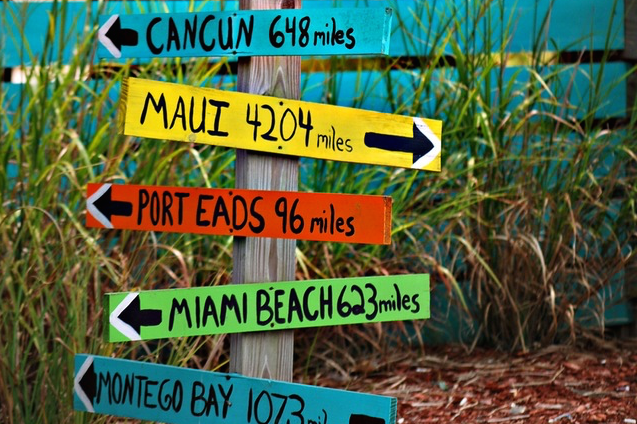 CANCUN 648 miles
MAUI 4204 miles
PORT EADS 96 miles
MIAMI BEACH 623 miles
MONTEGO BAY 1073 mil